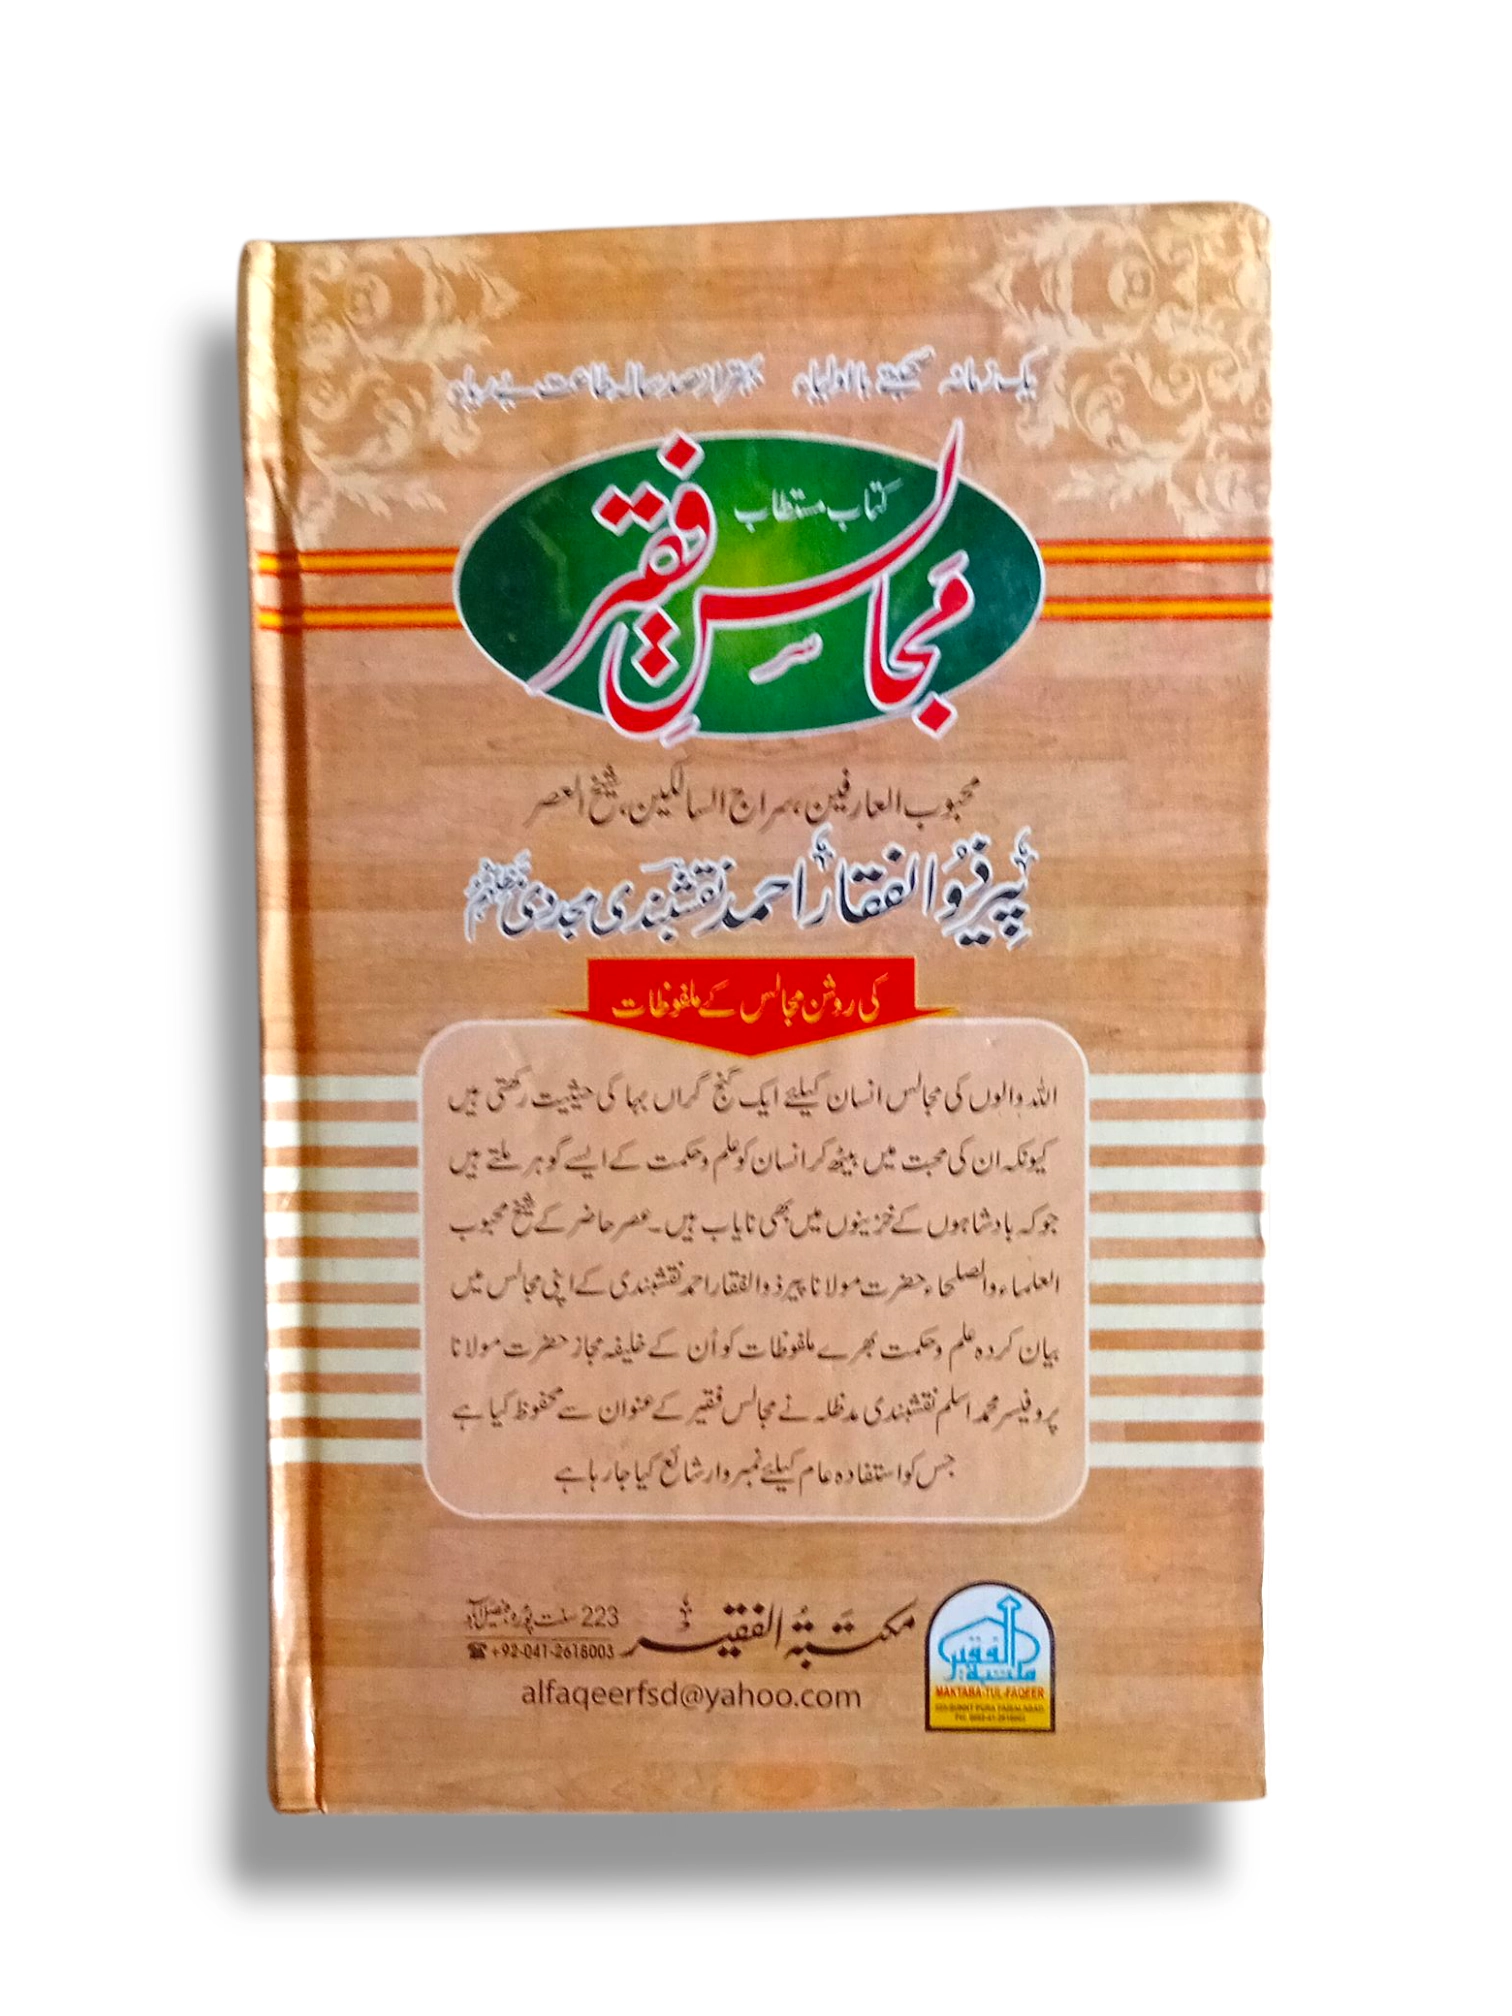 یک زمانہ صحبتے با اولیاء بہتر از صد سالہ طاعت بے ریاء
کتاب مستطاب
مجالسِ فقیر
محبوب العارفین، سراج السالکین، شیخ العصر
پیر ذوالفقار احمد نقشبندی مجددی
کی روشن مجالس کے ملفوظات
اللہ والوں کی مجالس انسان کیلئے ایک گنج گراں بہا کی حیثیت رکھتی ہیں
کیونکہ ان کی صحبت میں بیٹھ کر انسان کو علم و حکمت کے ایسے گوہر ملتے ہیں
جو کہ بادشاہوں کے خزینوں میں بھی نایاب ہیں۔ عصر حاضر کے شیخ محبوب
العلماء والصلحاء حضرت مولانا پیر ذوالفقار احمد نقشبندی کے اپنی مجالس میں
بیان کردہ علم و حکمت بھرے ملفوظات کو اُن کے خلیفہ مجاز حضرت مولانا
پروفیسر محمد اسلم نقشبندی مدظلہ نے مجالس فقیر کے عنوان سے محفوظ کیا ہے
جس کو استفادہ عام کیلئے نمبر وار شائع کیا جا رہا ہے
مکتبۃ الفقیر
223 سنت پورہ فیصل آباد
+92-041-2618003
alfaqeerfsd@yahoo.com
مکتبۃ الفقیر
MAKTABA-TUL-FAQEER
223 SUNNAT PURA FAISALABAD.
PH. 0092-41-2618003